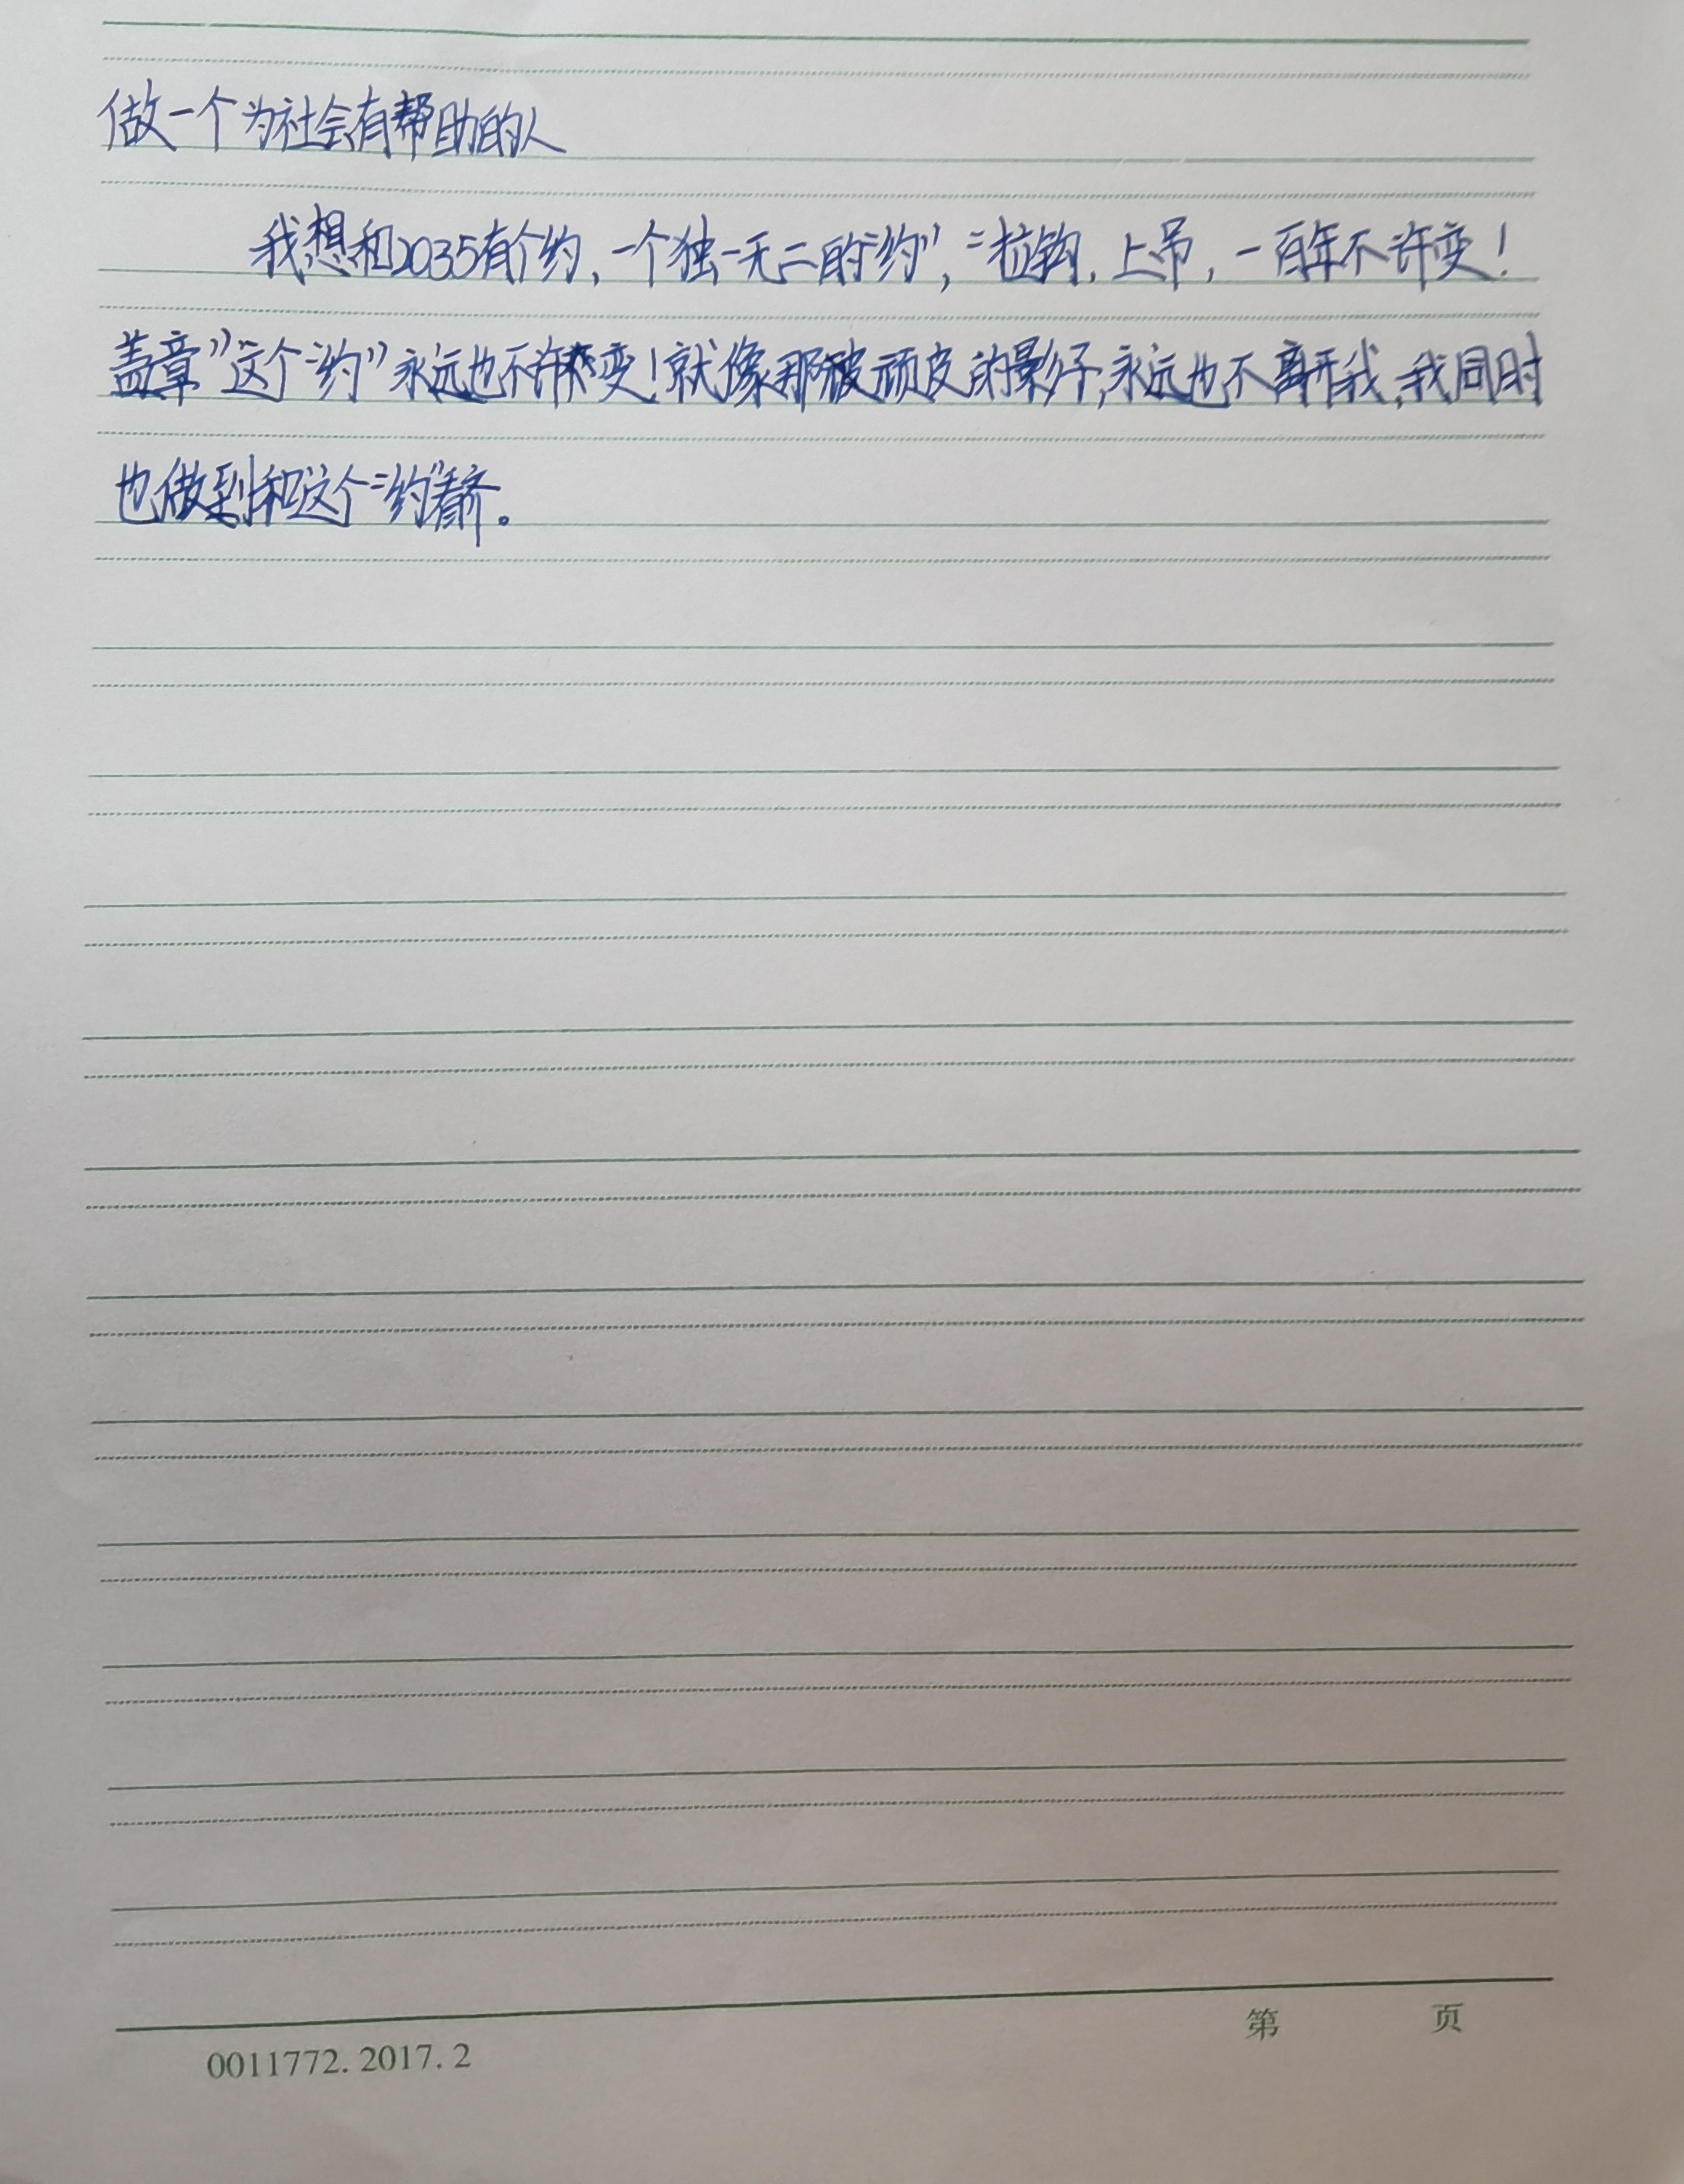 做一个为社会有帮助的人
我想和2035有个约，一个独一无二的“约”，“拉钩，上吊，一百年不许变！
盖章”这个“约”永远也不许变！就像那被顽皮的影子，永远也不离开我，我同时
也做到和这个“约”看齐。
0011772. 2017. 2
第 页